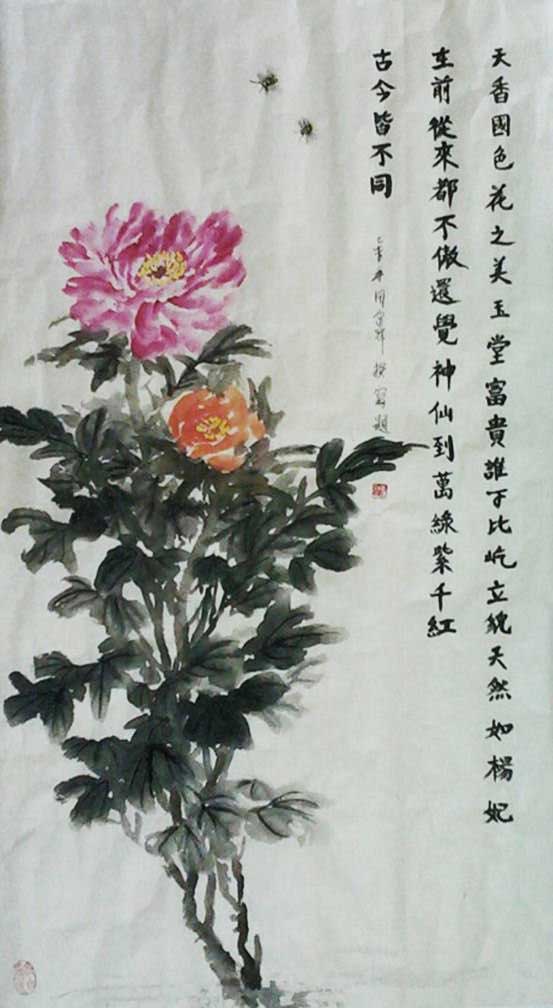 天香國色花之美玉堂富貴誰可比屹立貌天然如楊妃
在前從來都不傲還覺神仙到萬綠紫千紅
古今皆不同
撰寫題